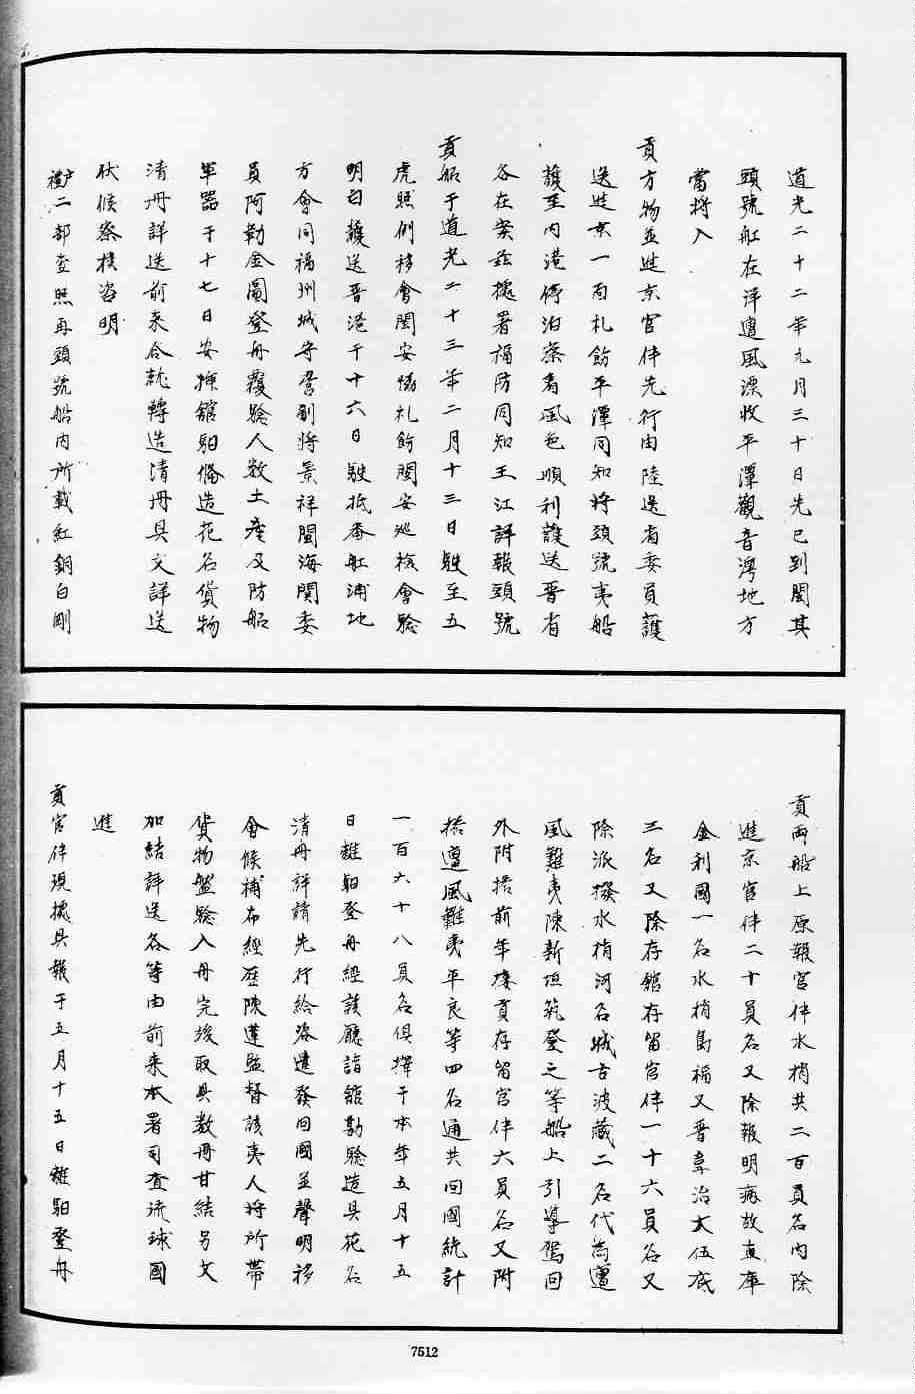 道光二十二年九月三十日先已到閩其
頭號船在洋遭風漂收平潭觀音灣地方
當將入
貢方物並進京官伴先行由陸送省委員護
送進京一面札飭平潭同知將頭號夷船
護至內港停泊察看風色順利護送晋省
各在案茲據署福防同知王江詳報頭號
貢船于道光二十三年二月十三日駛至五
虎照例移會閩安協札飭閩安巡檢會驗
明白護送晋港于十六日駛抵番舡浦地
方會同福州城守營副將景祥閩海關委
員阿勒金圖登舟覆驗人数土產及防船
軍器于十七日安揷舘驲俻造花名貨物
清冊詳送前來合就轉造清冊具文詳送
伏候察核咨明
禮戶二部查照再頭號船內所載紅銅白剛
貢兩船上原報官伴水梢共二百員名內除
進京官伴二十員名又除報明病故直庫
金利國一名水梢島福又晋韋治大伍底
三名又除存舘存留官伴一十六員名又
除派撥水梢河名城古波藏二名代為遭
風難夷陳新垣筑登之等船上引導駕回
外附搭前年接貢存留官伴六員名又附
搭遭風難夷平良等四名通共回國統計
一百六十八員名俱擇于本年五月十五
日離驲登舟經該廳詣舘勘驗造具花名
清冊詳請先行給咨遣發回國並聲明移
會候補布經歷陳蓮監督該夷人將所帶
貨物盤驗入舟完竣取具数冊甘結另文
加結詳送各等由前來本署司查流球國
進
貢官伴現據具報于五月十五日離驲登舟
7512